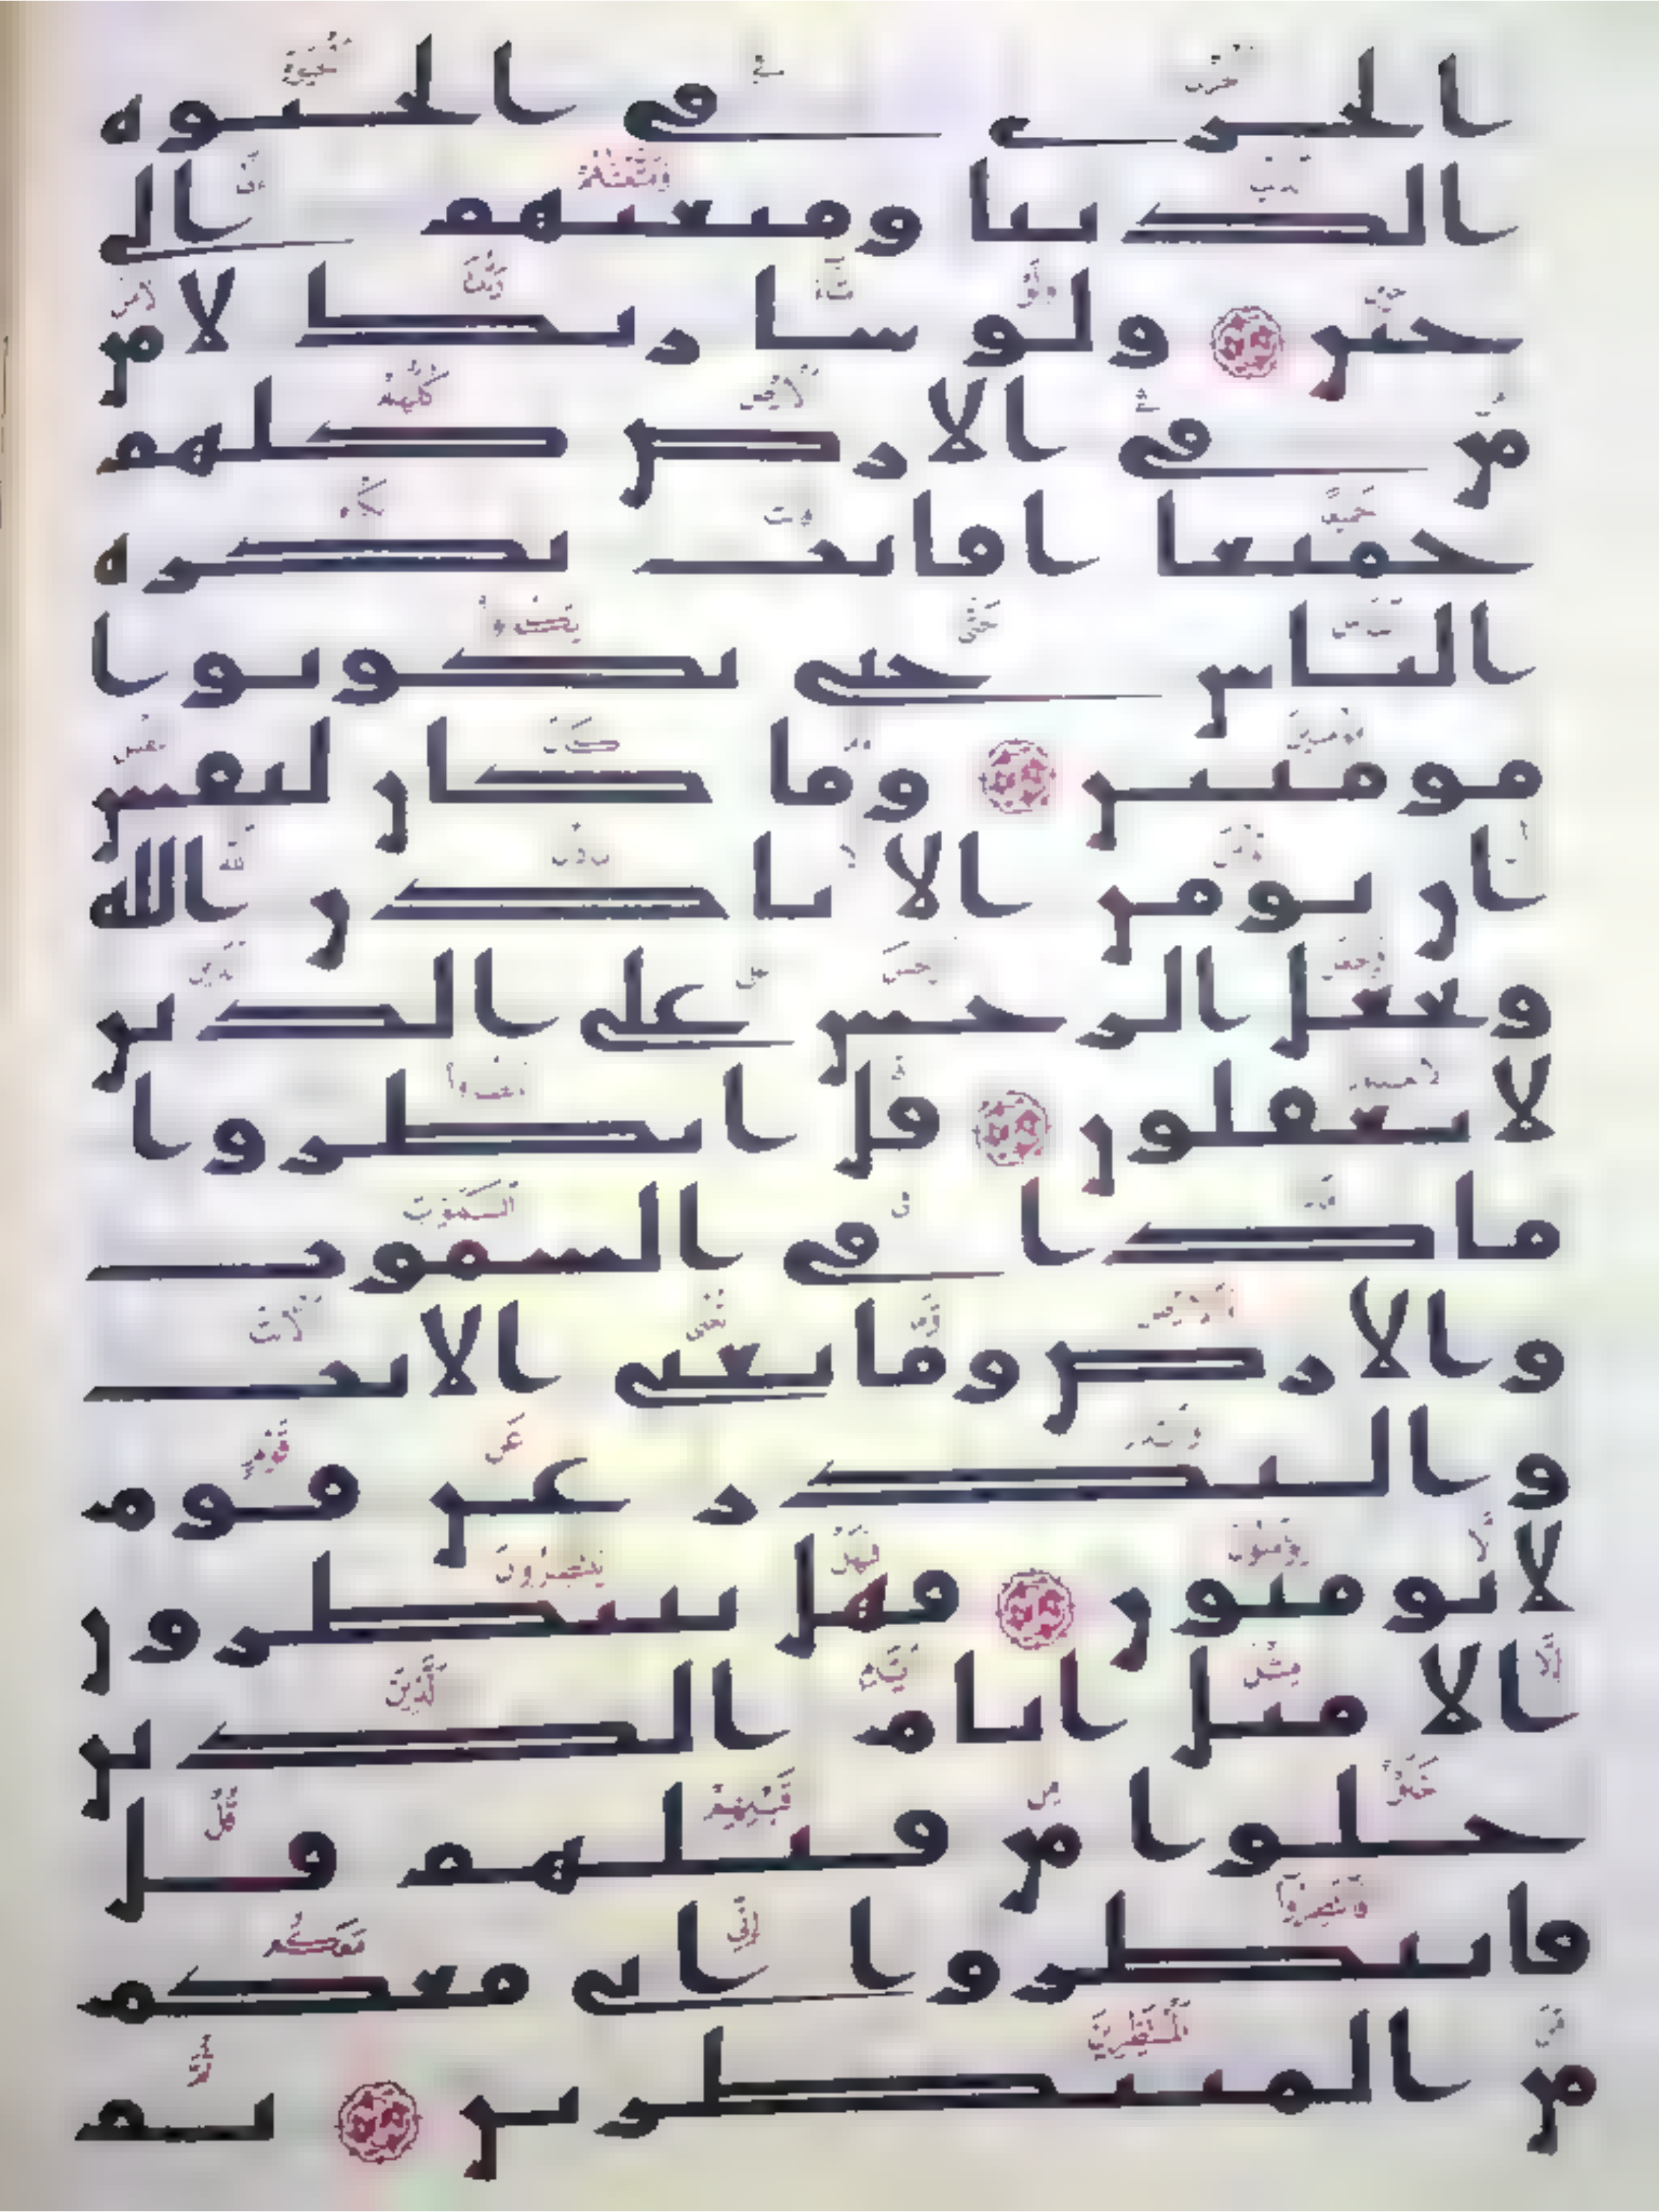 الخزى فى الحيوه
الدنيا ومتعنهم الى
حين ولو شا ربك لامن
من فى الارض كلهم
جميعا افانت تكره
الناس حتى يكونوا
مومنين وما كان لنفس
ان تومن الا باذن الله
ويجعل الرجس على الذين
لا يعقلون قل انظروا
ماذا فى السموت
والارض وما تغنى الايت
والنذر عن قوم
لا يومنون فهل ينتظرون
الا مثل ايام الذين
خلوا من قبلهم قل
فانتظروا انى معكم
من المنتظرين ثم